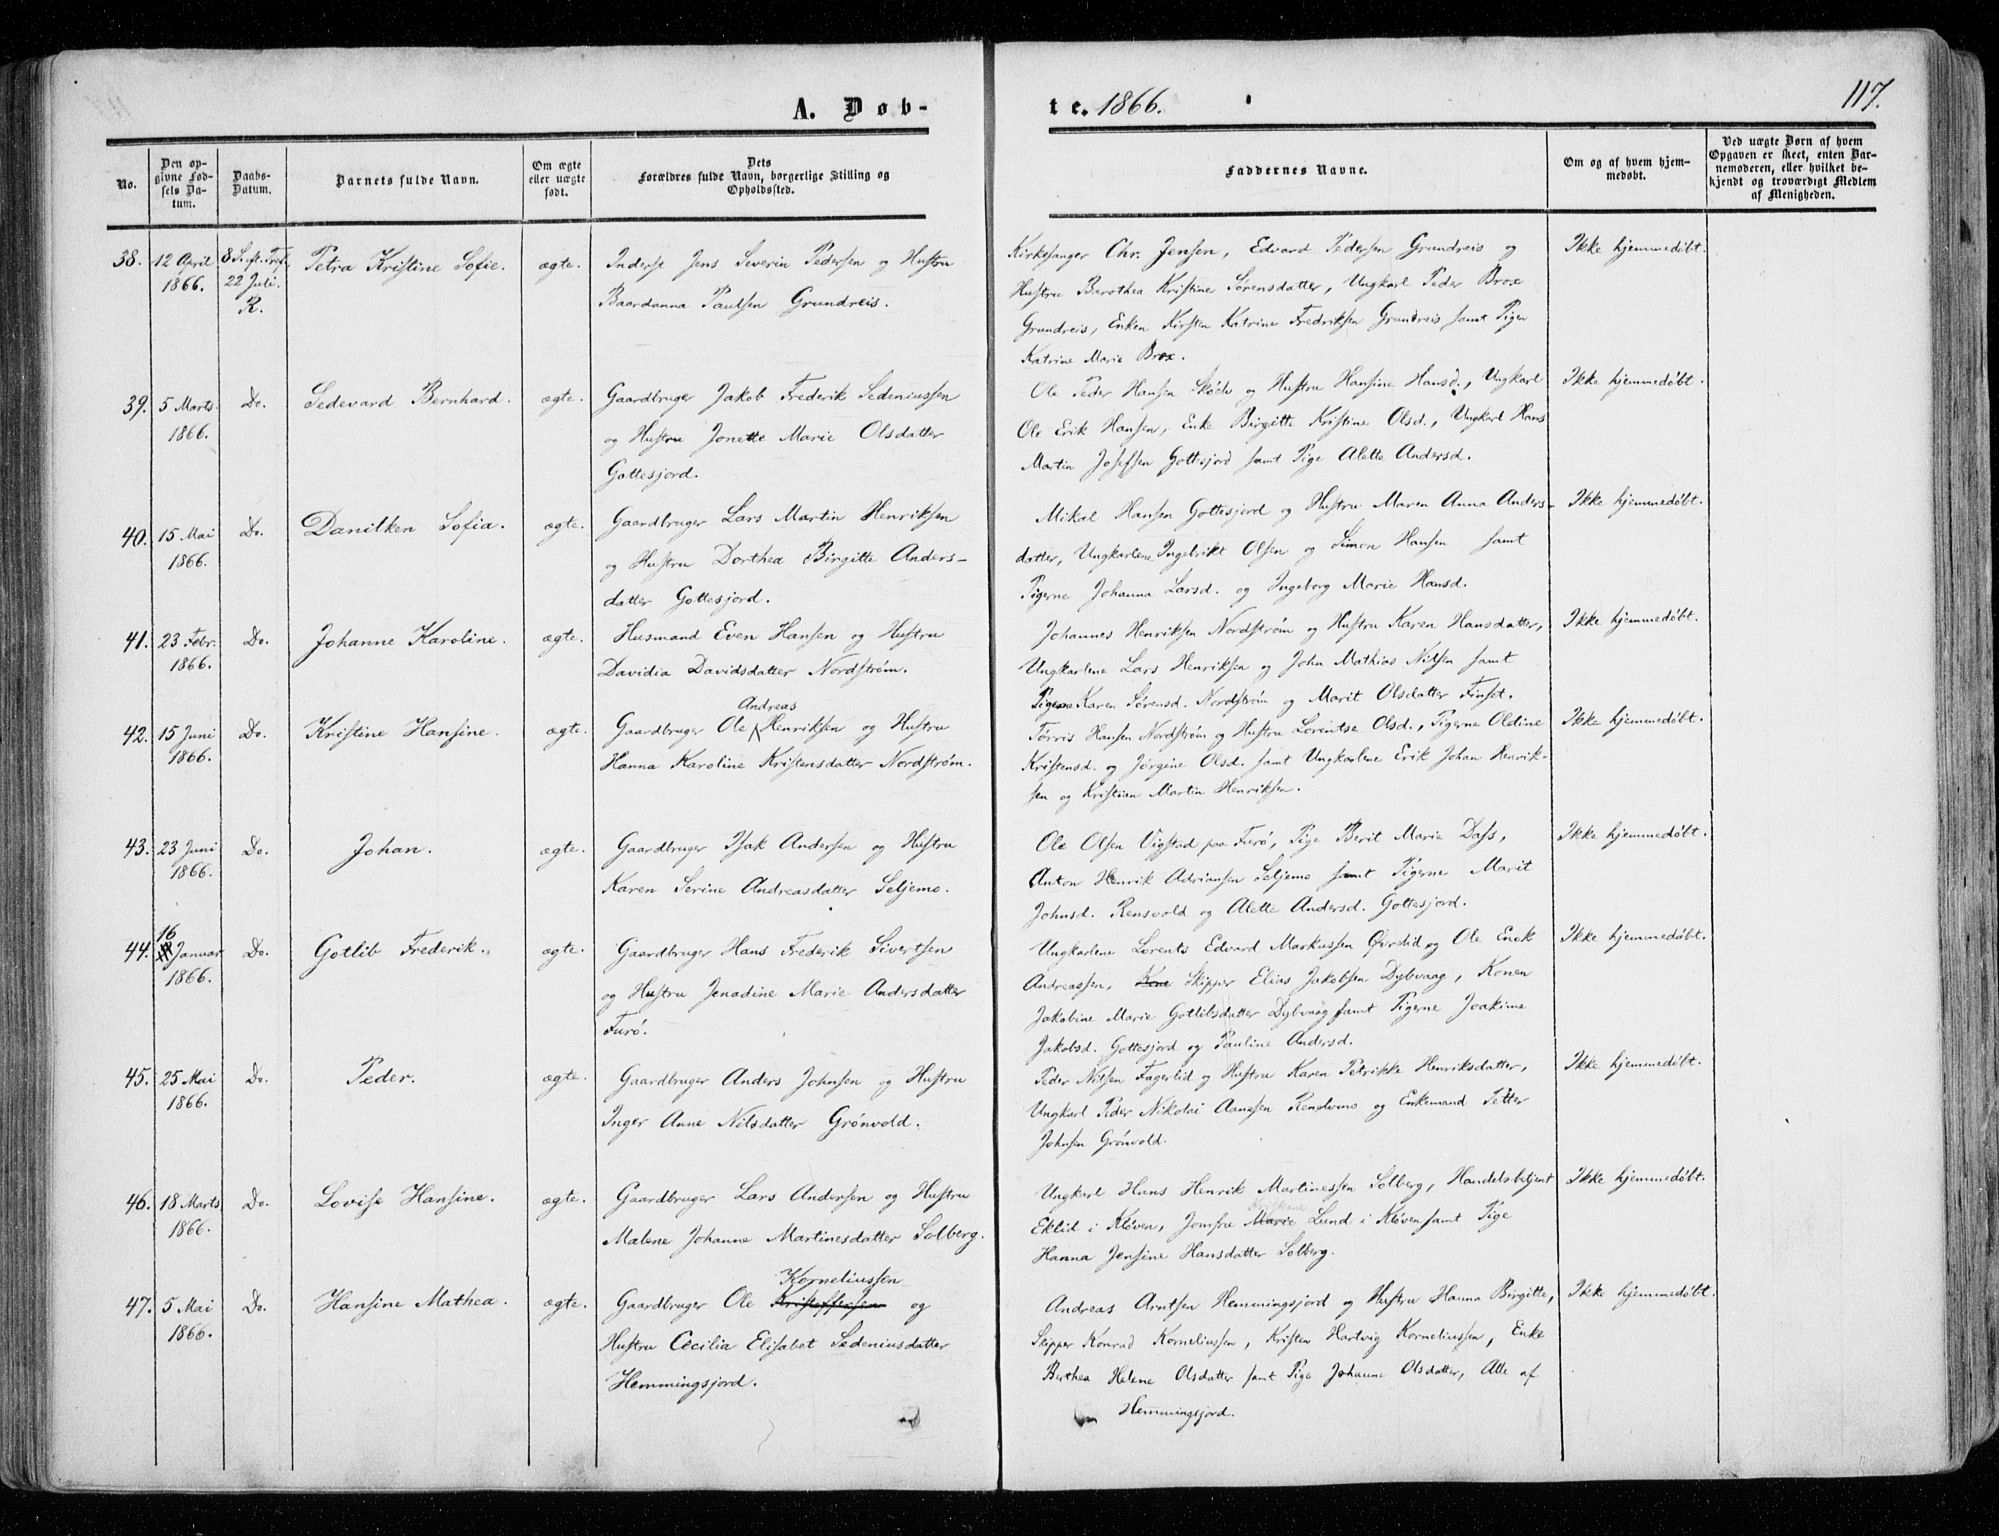 A. Døb-
te. 1866.
117.
No.
Den op-
givne Fød-
sels Da-
tum.
Daabs-
Datum.
Barnets fulde Navn.
Om ægte
eller uægte
født.
Dets
Forældres fulde Navn, borgerlige Stilling og
Opholdssted.
Faddernes Navne.
Om og af hvem hjem-
medøbt.
Ved uægte Børn af hvem
Opgaven er skeet, enten Bar-
nemoderen, eller hvilket be-
kjendt og troværdigt Medlem
af Menigheden.
38.
12 April
1866.
8 S. eft. Tref.
22 Juli.
R.
Petra Kristine Sofie.
ægte.
Inderse Jens Severin Pedersen og Hustru
Baardanna Paulsen Grundreis.
Kirkesanger Chr. Jensen, Edvard Pedersen Grundreis og
Hustru Barothea Kristine Sørensdatter, Ungkarl Peder Brox
Grundreis, Enken Kirsten Katrine Fredriksen Grundreis samt Pigen
Katrine Marie Brox.
Ikke hjemmedøbt.
39.
5 Marts
1866.
Do.
Sedevard Bernhard.
ægte.
Gaardbruger Jakob Frederik Sedeniussen
og Hustru Jonette Marie Olsdatter
Gottesjord.
Ole Peder Hansen og Hustru Hansine Hansd., Ungkarl
Ole Erik Hansen, Enke Birgitte Kristine Olsd., Ungkarl Hans
Martin Josefsen Gottesjord samt Pige Alette Andersd.
Ikke hjemmedøbt.
40.
15 Mai
1866.
Do.
Danilken Sofia.
ægte.
Gaardbruger Lars Martin Henriksen
og Hustru Dorthea Birgitte Anders-
datter Gottesjord.
Mikal Hansen Gottesjord og Hustru Maren Anna Anders-
datter, Ungkarlene Ingebrikt Olsen og Simon Hansen samt
Pigerne Johanna Larsd. og Ingeborg Marie Hansd.
Ikke hjemmedøbt.
41.
23 Febr.
1866.
Do.
Johanne Karoline.
ægte.
Husmand Even Hansen og Hustru
Davidia Davidsdatter Nordstrøm.
Johannes Henriksen Nordstrøm og Hustru Karen Hansdatter,
Ungkarlene Lars Henriksen og John Mathias Nilsen samt
Pigerne Karen Sørensd. Nordstrøm og Marit Olsdatter Finset.
Ikke hjemmedøbt.
42.
15 Juni
1866.
Do.
Kristine Hansine.
ægte.
Andreas
Gaardbruger Ole Henriksen og Hustru
Hanna Karoline Kristensdatter Nordstrøm.
Tørris Hansen Nordstrøm og Hustru Lorentse Olsd., Pigerne Oldine
Kristensd. og Jørgine Olsd. samt Ungkarlene Erik Johan Henrik-
sen og Kristian Martin Henriksen.
Ikke hjemmedøbt.
43.
23 Juni
1866.
Do.
Johan.
ægte.
Gaardbruger Isak Andersen og Hustru
Karen Serine Andreasdatter Seljemo.
Ole Olsen Vigstad paa Furø, Pige Berit Marie Dass,
Anton Henrik Adriansen Seljemo samt Pigerne Marit
Johnsd. Rensvold og Alette Andersd. Gottesjord.
Ikke hjemmedøbt.
44.
16
Januar
1866.
Do.
Gotlib Frederik.
ægte.
Gaardbruger Hans Frederik Sivertsen
og Hustru Jenadine Marie Andersdatter
Furø.
Ungkarlene Lorents Edvard Markussen Øvrelid og Ole Enok
Andreassen, Kone Skipper Elias Jakobsen Dybvaag, Konen
Jakobine Marie Gotlibsdatter Dybvaag samt Pigerne Joakime
Jakobsd. Gottesjord og Pauline Andersd.
Ikke hjemmedøbt.
45.
25 Mai
1866.
Do.
Peder.
ægte.
Gaardbruger Anders Johnsen og Hustru
Inger Anne Nilsdatter Grønvold.
Peder Nilsen Fagerlid og Hustru Karen Petrikke Henriksdatter,
Ungkarl Peder Nikolai Aansen og Enkemand Petter
Johnsen Grønvold.
Ikke hjemmedøbt.
46.
18 Marts
1866.
Do.
Lovise Hansine.
ægte.
Gaardbruger Lars Andersen og Hustru
Malene Johanne Martinesdatter Solberg.
Ungkarl Hans Henrik Martinessen Solberg, Handelsbetjent
Eklid i Kløven, Jomfru Marie Lund i Kløven samt Pige
Hanna Jensine Hansdatter Solberg.
Ikke hjemmedøbt.
47.
5 Mai
1866.
Do.
Hansine Mathea.
ægte.
Korneliussen
Gaardbruger Ole Kristoffersen og
Hustru Cecilia Elisabet Sedeniusdatter
Hemmingsjord.
Andreas Arntsen Hemmingsjord og Hustru Hanna Birgitte,
Skipper Konrad Korneliussen, Kristen Hartvig Korneliussen, Enke
Berthea Helene Olsdatter samt Pige Johanne Olsdatter, Alle af
Hemmingsjord.
Ikke hjemmedøbt.